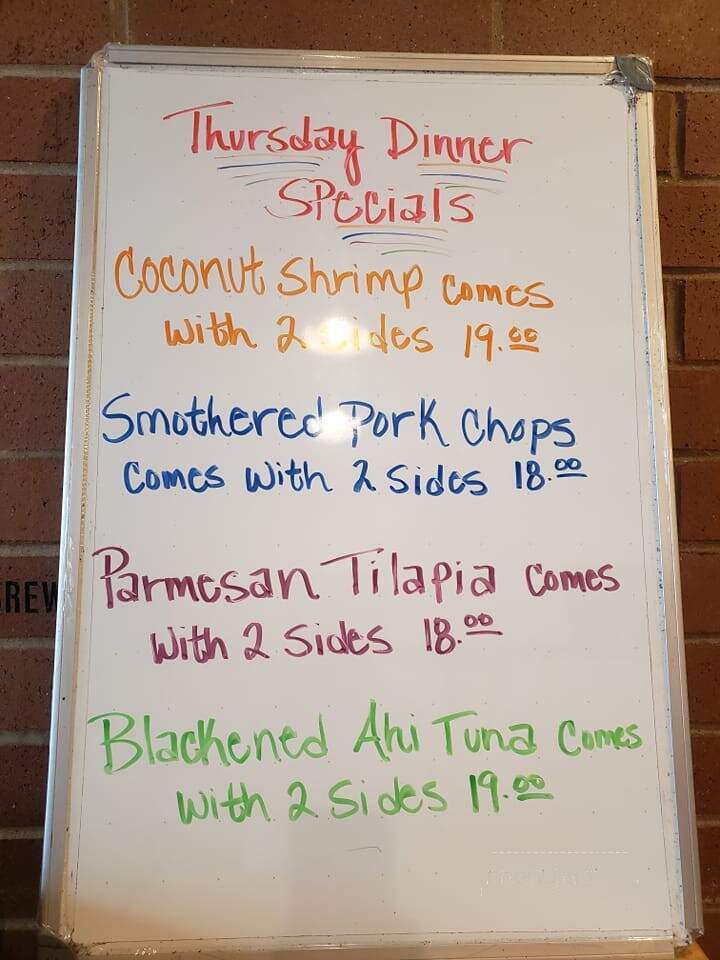 Thursday Dinner
Specials
Coconut Shrimp Comes
with 2 Sides 19.00
Smothered Pork Chops
Comes with 2 Sides 18.00
REW
Parmesan Tilapia Comes
with 2 Sides 18.00
Blackened Ahi Tuna Comes
with 2 Sides 19.00